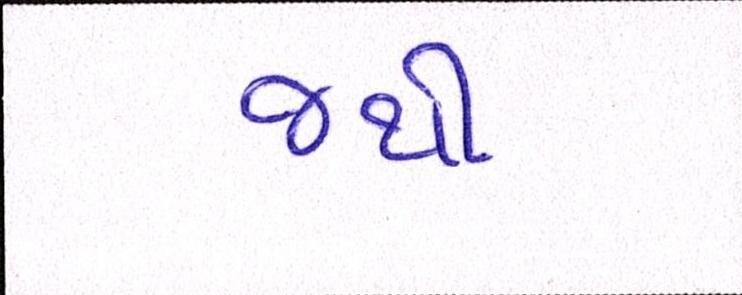 જથી